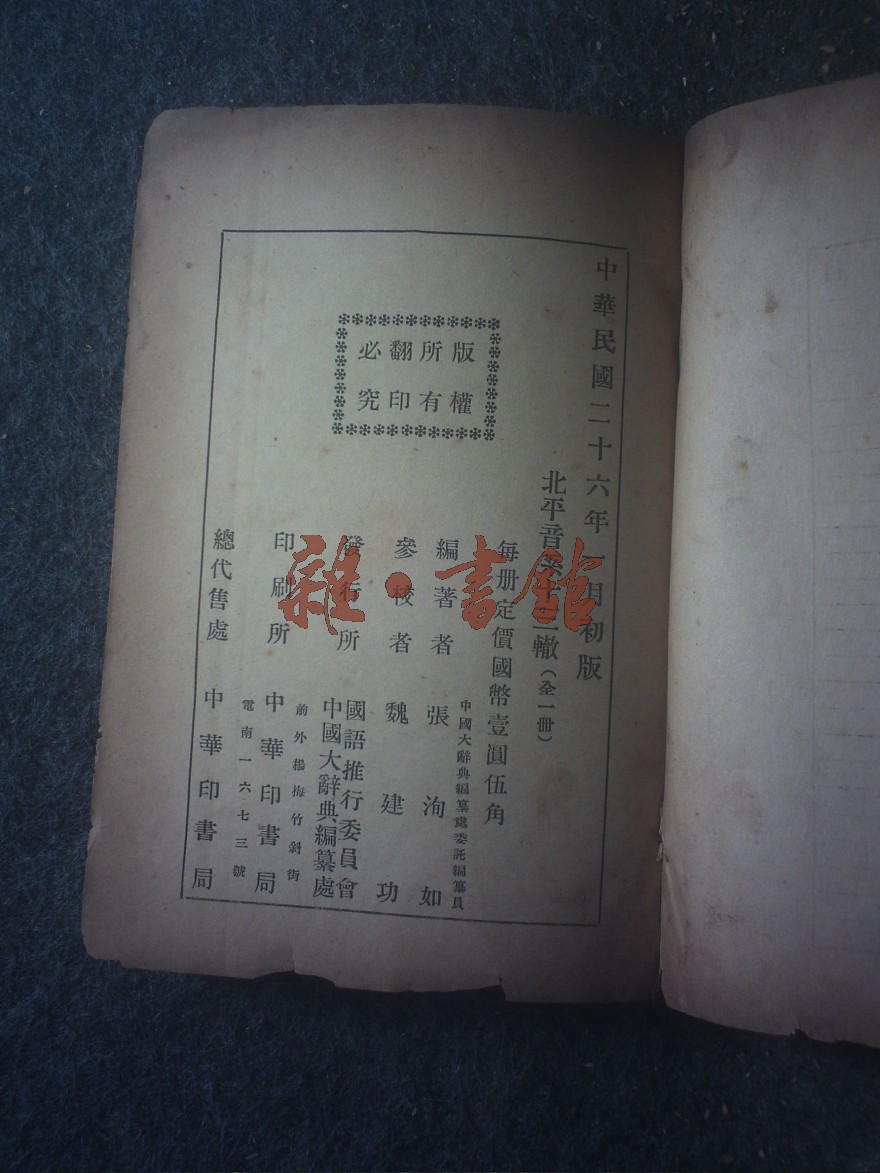 中華民國二十六年一月初版
北平音系十三轍（全一冊）
每册定價國幣壹圓伍角
中國大辭典編纂處委託編纂員
編著者 張洵如
參校者 魏建功
發行所 國語推行委員會
中國大辭典編纂處
前外楊梅竹斜街
印刷所 中華印書局
電南一六七三號
總代售處 中華印書局
版權
所有
翻印
必究
雜·書館